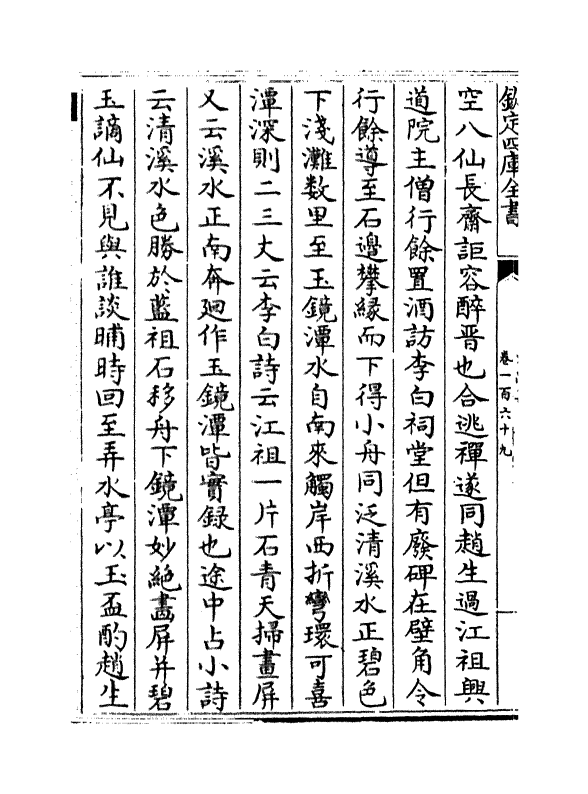 欽定四庫全書
卷一百六十九
空八仙長齋詎容醉晋也合逃禪遂同趙生過江祖興
道院主僧行餘置酒訪李白祠堂但有廢碑在壁角令
行餘導至石邉攀縁而下得小舟同泛清溪水正碧色
下淺灘数里至玉鏡潭水自南來觸岸西折彎環可喜
潭深則二三丈云李白詩云江祖一片石青天掃畫屏
又云溪水正南奔廻作玉鏡潭皆實録也途中占小詩
云清溪水色勝於藍祖石移舟下鏡潭妙絶畵屏并碧
玉謫仙不見與誰談晡時回至弄水亭以玉盃酌趙生